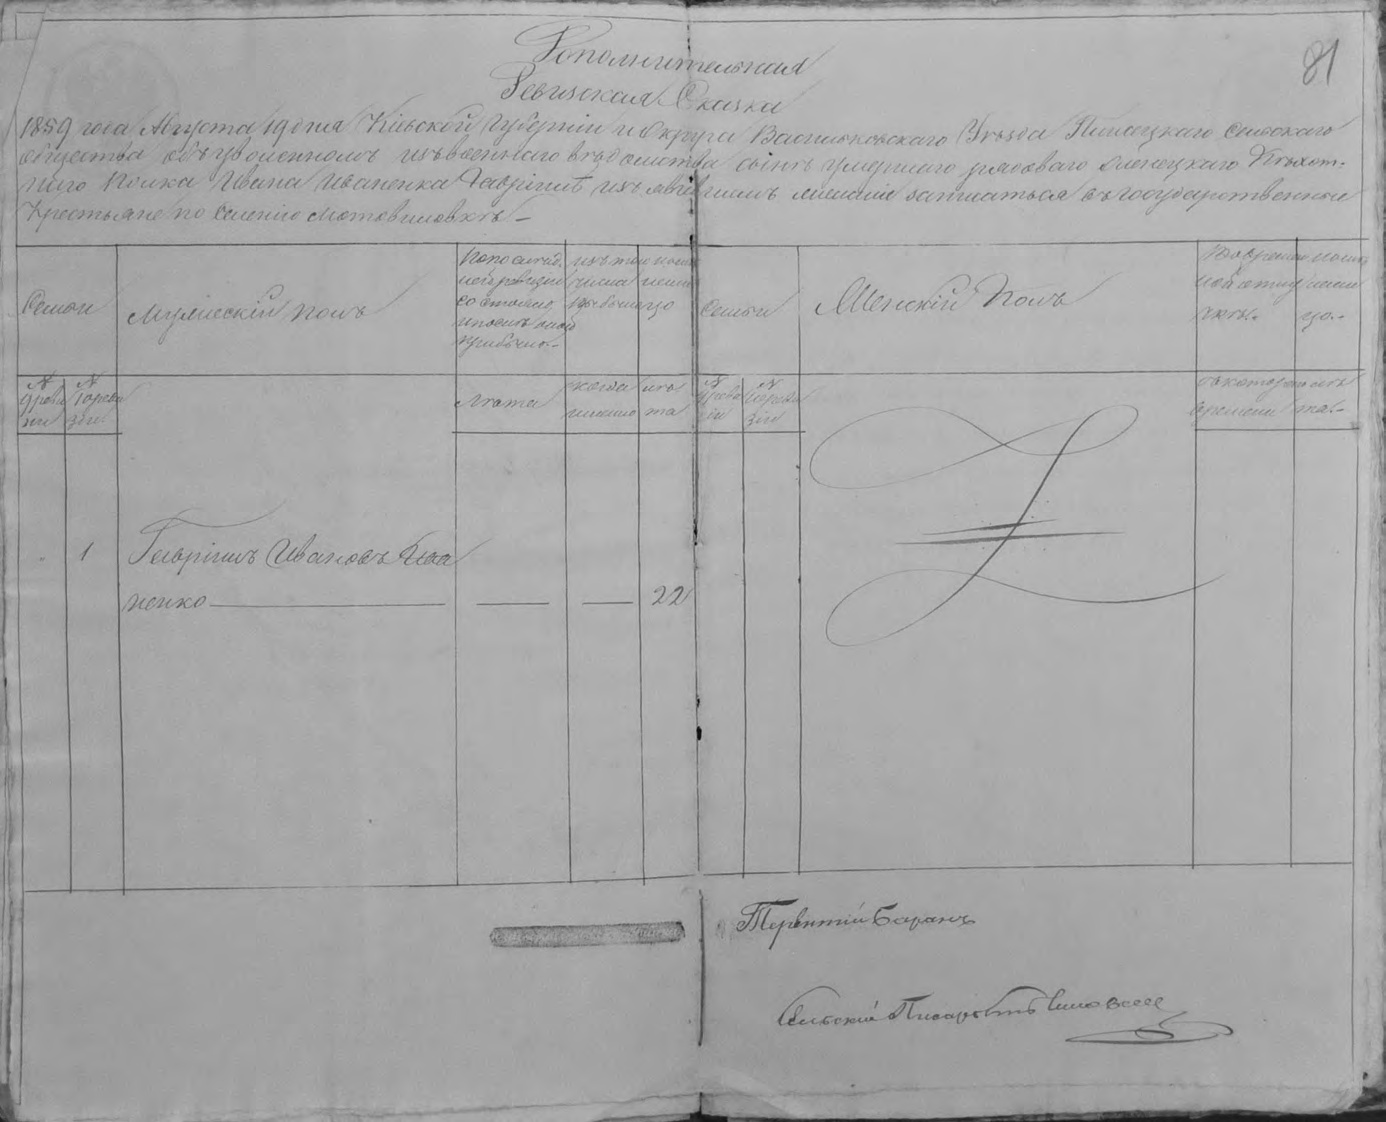 81
Дополнительная
Ревизская Сказка
1859 года Августа 19 дня Кіевской Губерніи и Округа Васильковскаго Уѣзда Сельскаго
общества объ уволенномъ изъ военнаго вѣдомства сынѣ умершаго рядоваго Олонецкаго Пѣхот-
наго Полка Ивана Иваненка Гавріилѣ изъявившемъ желаніе записаться въ Государственные
Крестьяне по Селенію Мотовиловкѣ –
Семьи
Мужескій полъ
По последней ревизіи состояло и после оной прибыло
изъ того числа выбыло
Семьи
Женскій Полъ
№ ревизіи
№ ревизіи
Лѣта
когда именно
лѣта
№ ревизіи
№ ревизіи
съ котораго времени
лѣта
1
Гавріилъ Ивановъ Ива
ненко
22
Терентій Баранъ
Сельскій Писарь